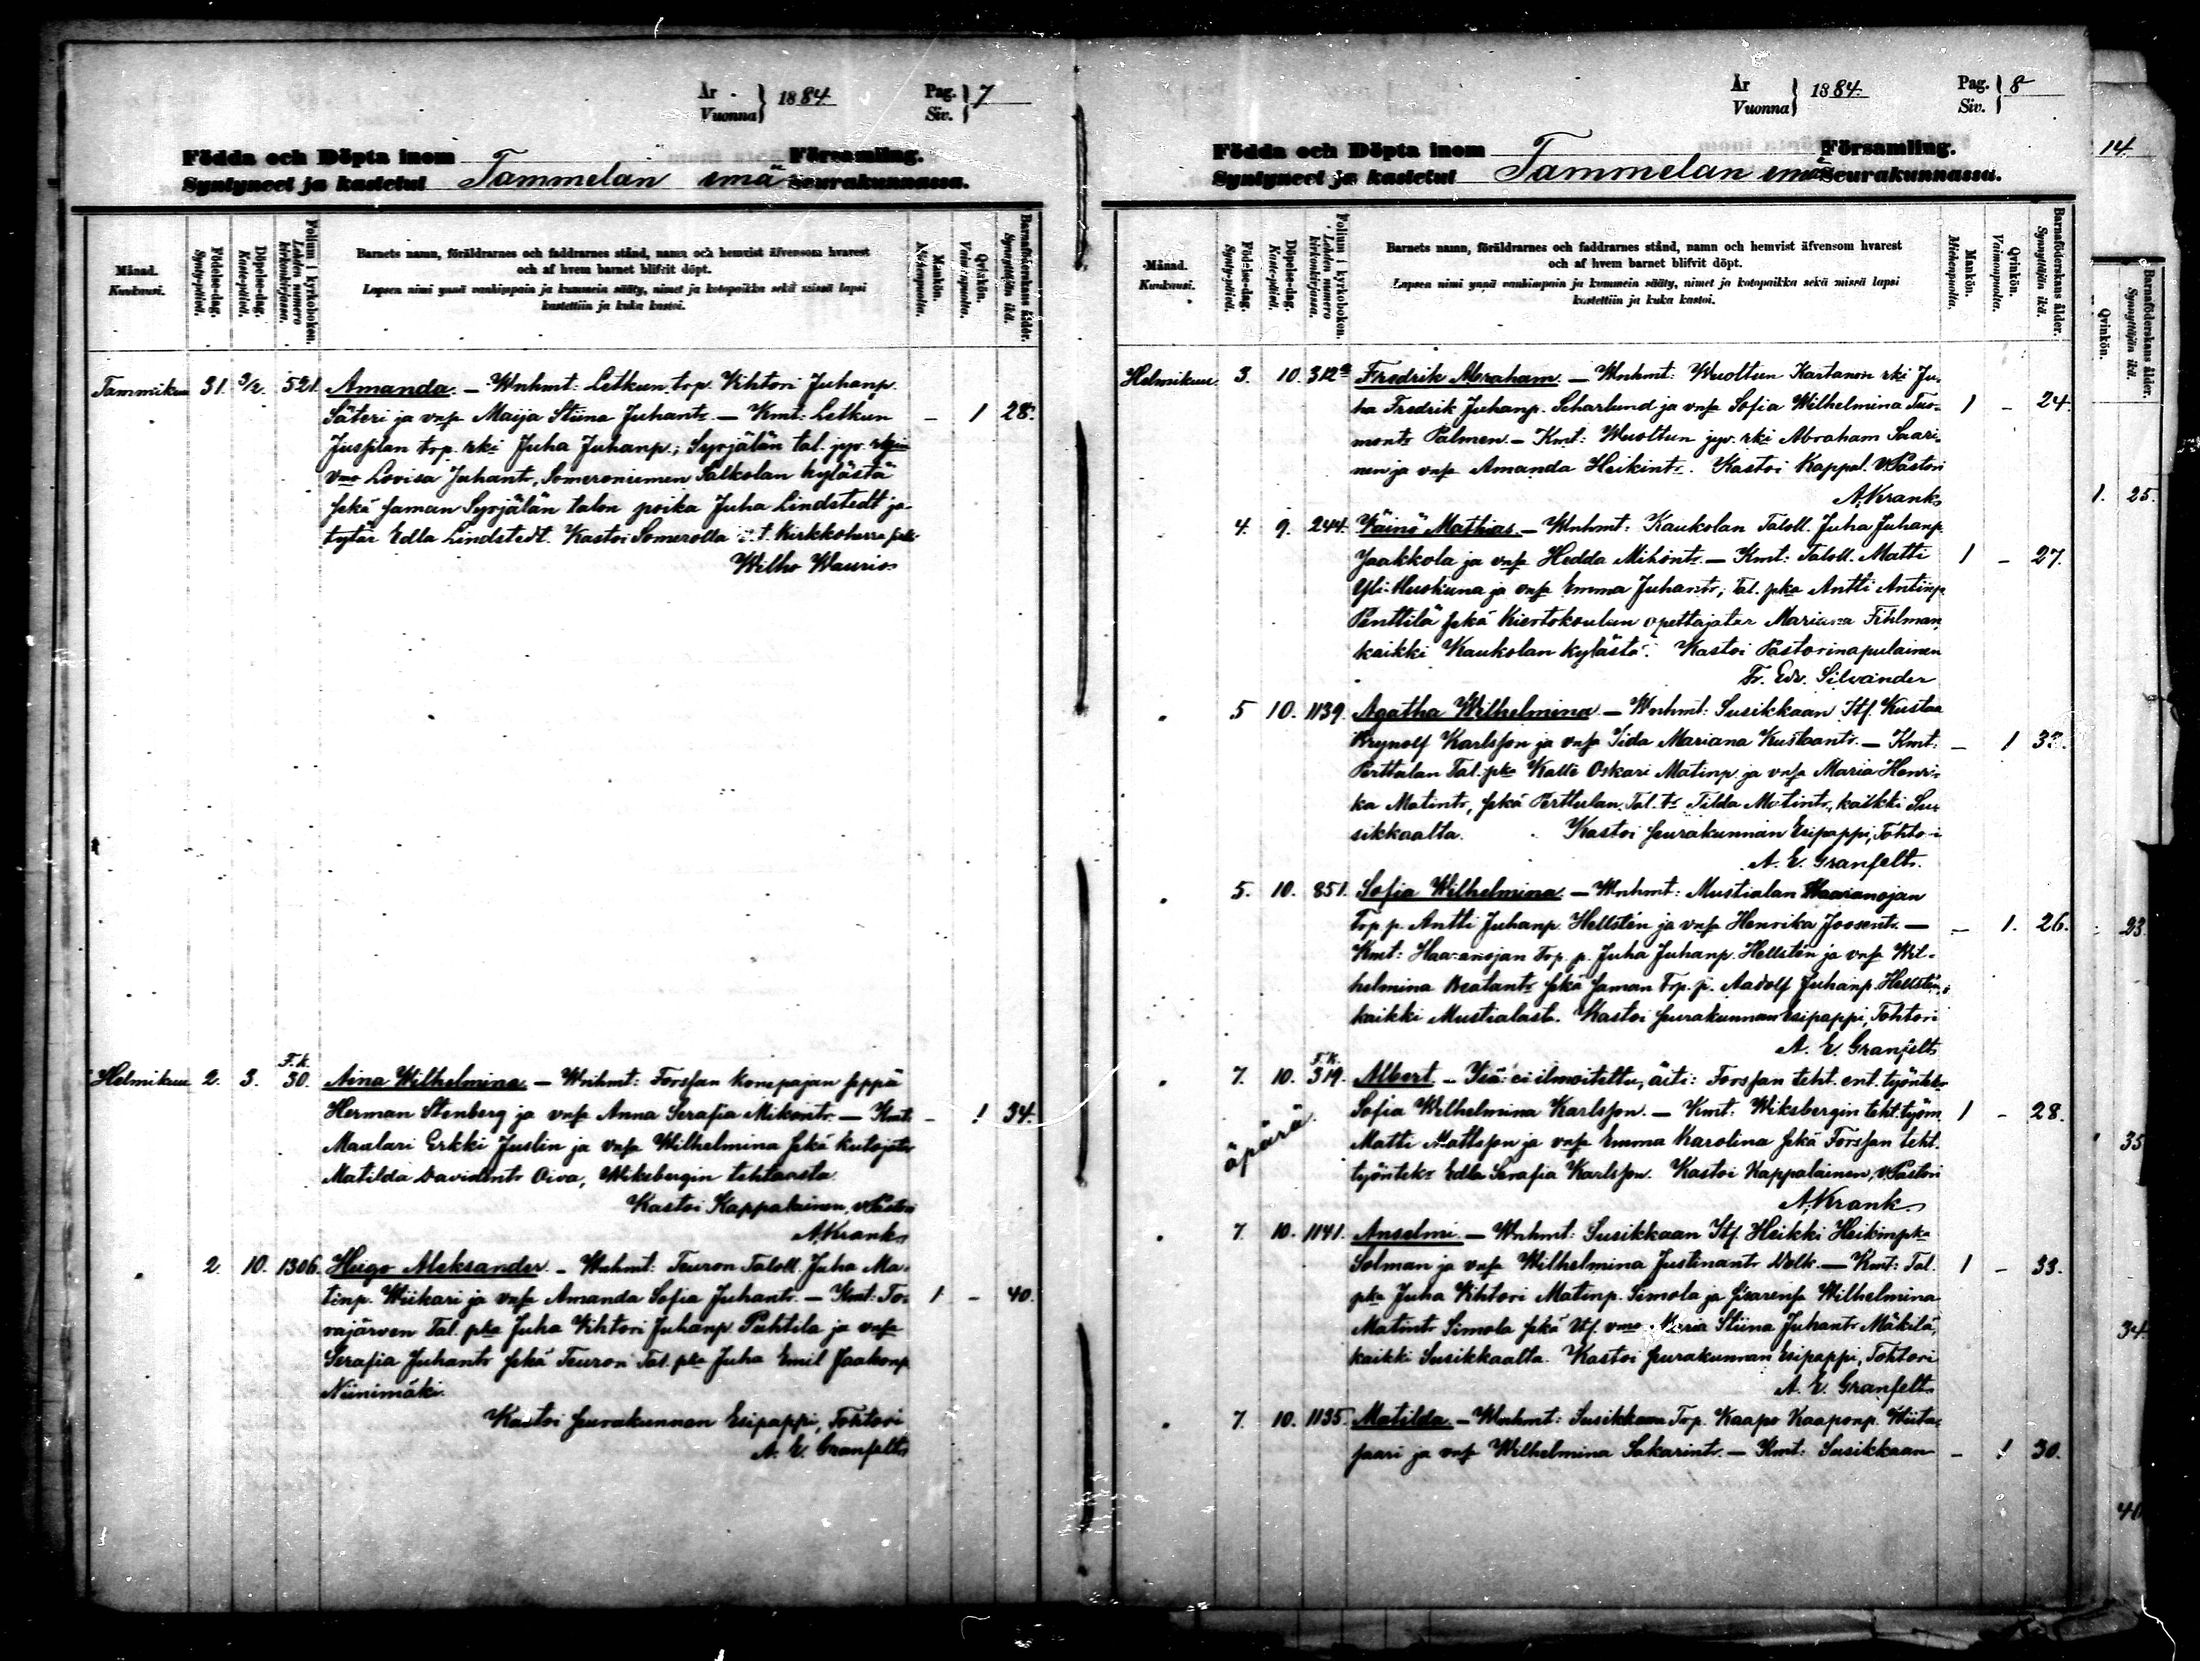 År
Vuonna } 1884
Pag.
Siv. } 7
Födda och Döpta inom Församling.
Syntyneet ja kastetut Tammelan emä Seurakunnassa.
Månad.
Kuukausi.
Födelse-dag.
Synty-päivä.
Döpelse-dag.
Kaste-päivä.
Folium i kyrkoboken.
Lehden numero kirkonkirjassa.
Barnets namn, föräldrarnes och faddrarnes stånd, namn och hemvist äfvensom hvarest
och af hvem barnet blifvit döpt.
Lapsen nimi ynnä vanhimpain ja kummein sääty, nimet ja kotopaikka sekä missä lapsi
kastettiin ja kuka kastoi.
Mankön.
Miehenpuolia.
Qvinkön.
Vaimonpuolia.
Barnaföderskans ålder.
Synnyttäjän ikä.
Tammikuu 31. 3/2. 521. Amanda. — Wnhmt: Letkun trp. Vihtori Juhanp.
Säteri ja vmsa Maija Stiina Juhantr. — Kmt: Letkun — 1 28.
Jussilan trp. rki Juha Juhanp.; Syrjälän tal. jyv.
vmo Lovisa Juhantr, Someroniemen Salkolan kylästä
sekä saman Syrjälän talon poika Juha Lindstedt ja
tytär Edla Lindstedt. Kastoi Somerolla v. t. Kirkkoherra
Wilho Waurio
Helmikuu 2. 3. F.k. 30. Aina Wilhelmina. — Wnhmt: Forssan konepajan seppä
Herman Stenberg ja vmsa Anna Serafia Mikontr. — Kmt: — 1 34.
Maalari Erkki Juslin ja vmsa Wilhelmina sekä kutojatar
Matilda Davidintr Oiva, Wiksbergin tehtaasta.
Kastoi Kappalainen, v. Pastori
A. Krank
2. 10. 1306. Hugo Aleksander. — Wnhmt: Teuron Taloll. Juha Ma-
tinp. Wiikari ja vmsa Amanda Sofia Juhantr. — Kmt: To- 1 — 40.
rajärven Tal. pka Juha Vihtori Juhanp. Puhtila ja vmsa
Serafia Juhantr sekä Teuron Tal. pka Juha Emil Jaakonp.
Niinimäki.
Kastoi seurakunnan Esipappi, Tohtori
A. E. Granfelt
År
Vuonna } 1884.
Pag.
Siv. } 8
Födda och Döpta inom Församling.
Syntyneet ja kastetut Tammelan emä Seurakunnassa.
Månad.
Kuukausi.
Födelse-dag.
Synty-päivä.
Döpelse-dag.
Kaste-päivä.
Folium i kyrkoboken.
Lehden numero kirkonkirjassa.
Barnets namn, föräldrarnes och faddrarnes stånd, namn och hemvist äfvensom hvarest
och af hvem barnet blifvit döpt.
Lapsen nimi ynnä vanhimpain ja kummein sääty, nimet ja kotopaikka sekä missä lapsi
kastettiin ja kuka kastoi.
Mankön.
Miehenpuolia.
Qvinkön.
Vaimonpuolia.
Barnaföderskans ålder.
Synnyttäjän ikä.
Helmikuu 3. 10. 312a Fredrik Abraham. — Wnhmt: Wuoltun Kartanon rki Ju-
ha Fredrik Juhanp. Scharlund ja vmsa Sofia Wilhelmina Tuo- 1 — 24.
montr Palmen. — Kmt: Wuoltun jyv. rki Abraham Saari-
nen ja vmsa Amanda Heikintr. Kastoi Kappal. v. Pastori
A. Krank
4. 9. 244. Väinö Mathias. — Wnhmt: Kaukolan Taloll. Juha Juhanp.
Jaakkola ja vmsa Hedda Mihintr. — Kmt: Taloll. Matti 1 — 27.
Yli-Huskuna ja vmsa Emma Juhantr; Tal. pka Antti Antinp.
Penttilä sekä Kiertokoulun opettajatar Mariana Fihlman,
kaikki Kaukolan kylästä. Kastoi Pastorinapulainen
Fr. Edv. Silvander
5 10. 1139. Agatha Wilhelmina. — Wnhmt: Susikkaan Itf. Kustaa
Brynolf Karlsson ja vmsa Iida Mariana Kustaantr. — Kmt: — 1
Perttulan Tal. pka Kalle Oskari Matinp. ja vmsa Maria Henri-
ka Matintr, sekä Perttulan Tal. tr Tilda Matintr, kaikki Su-
sikkaalta. Kastoi seurakunnan Esipappi, Tohtori
A. E. Granfelt.
5. 10. 851. Sofia Wilhelmina. — Wnhmt: Mustialan Haaranojan
Trp. p. Antti Juhanp. Hellstén ja vmsa Henrika Joosentr. — — 1. 26.
Kmt: Haaranojan Trp. p. Juha Juhanp. Hellstén ja vmsa Wil-
helmina Beatantr sekä saman Trp. p. Aadolf Juhanp. Hellstén,
kaikki Mustialasta. Kastoi seurakunnan Esipappi, Tohtori
A. E. Granfelt
7. 10. F.K. 319. Albert. — Isä: ei ilmoitettu, äiti: Forssan teht. ent. työntek.
Sofia Wilhelmina Karlsson. — Kmt: Wiksbergin teht. työm. 1 — 28.
äpärä
Matti Mattsson ja vmsa Emma Karolina sekä Forssan teht.
työntek. Edla Serafia Karlsson. Kastoi Kappalainen, v. Pastori
A. Krank
7. 10. 1141. Anselmi. — Wnhmt: Susikkaan Itf. Heikki Heikinpka
Solman ja vmsa Wilhelmina Justinantr Wolk. — Kmt: Tal. 1 — 33.
pka Juha Vihtori Matinp. Simola ja sisarensa Wilhelmina
Matintr Simola sekä Itf. vmo Maria Stiina Juhantr Mäkilä,
kaikki Susikkaalta. Kastoi seurakunnan Esipappi, Tohtori
A. E. Granfelt
7. 10. 1135. Matilda. — Wnhmt: Susikkaan Trp. Kaapo Kaaponp. Wiita-
saari ja vmsa Wilhelmina Sakarintr. — Kmt: Susikkaan — 1 30.
14.
Qvinkön.
Barnaföderskans ålder.
Synnyttäjän ikä.
1. 25.
23.
35
34.
40